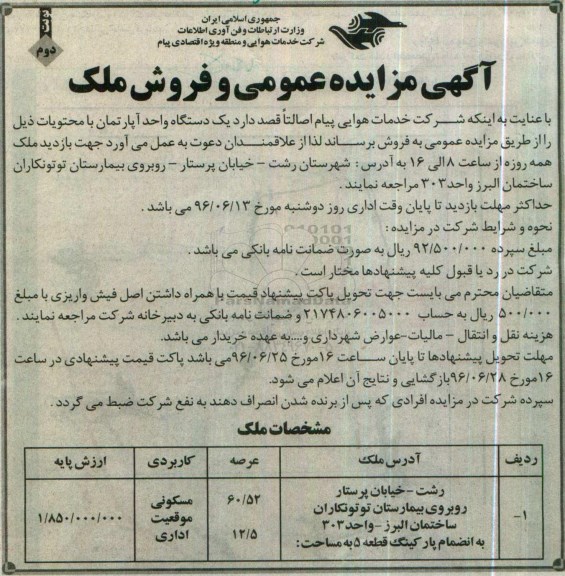 جمهوری اسلامی ایران
وزارت ارتباطات وفن آوری اطلاعات
شرکت خدمات هوایی و منطقه ویژه اقتصادی پیام
نوبت
دوم
آگهی مزایده عمومی و فروش ملک
با عنایت به اینکه شرکت خدمات هوایی پیام اصالتاً قصد دارد یک دستگاه واحد آپارتمان با محتویات ذیل
را از طریق مزایده عمومی به فروش برساند لذا از علاقمندان دعوت به عمل می آورد جهت بازدید ملک
همه روزه از ساعت ۸ الی ۱۶ به آدرس : شهرستان رشت - خیابان پرستار - روبروی بیمارستان توتونکاران
ساختمان البرز واحد ۳۰۳ مراجعه نمایند .
حداکثر مهلت بازدید تا پایان وقت اداری روز دوشنبه مورخ ۹۶/۰۶/۱۳ می باشد .
نحوه و شرایط شرکت در مزایده :
مبلغ سپرده ۹۲/۵۰۰/۰۰۰ ریال به صورت ضمانت نامه بانکی می باشد .
شرکت در رد یا قبول کلیه پیشنهادها مختار است .
متقاضیان محترم می بایست جهت تحویل پاکت پیشنهاد قیمت با همراه داشتن اصل فیش واریزی با مبلغ
۵۰۰/۰۰۰ ریال به حساب ۲۱۷۴۸۰۶۰۰۵۰۰۰ و ضمانت نامه بانکی به دبیرخانه شرکت مراجعه نمایند .
هزینه نقل و انتقال - مالیات-عوارض شهرداری و....به عهده خریدار می باشد.
مهلت تحویل پیشنهادها تا پایان ساعت ۱۶ مورخ ۹۶/۰۶/۲۵ می باشد پاکت قیمت پیشنهادی در ساعت
۱۶ مورخ ۹۶/۰۶/۲۸ بازگشایی و نتایج آن اعلام می شود.
سپرده شرکت در مزایده افرادی که پس از برنده شدن انصراف دهند به نفع شرکت ضبط می گردد .
مشخصات ملک
ردیف آدرس ملک عرصه کاربردی ارزش پایه
رشت - خیابان پرستار
۱- روبروی بیمارستان توتونکاران ۶۰/۵۲ مسکونی ۱/۸۵۰/۰۰۰/۰۰۰
ساختمان البرز - واحد ۳۰۳ موقعیت
به انضمام پارکینگ قطعه ۵ به مساحت: ۱۲/۵ اداری